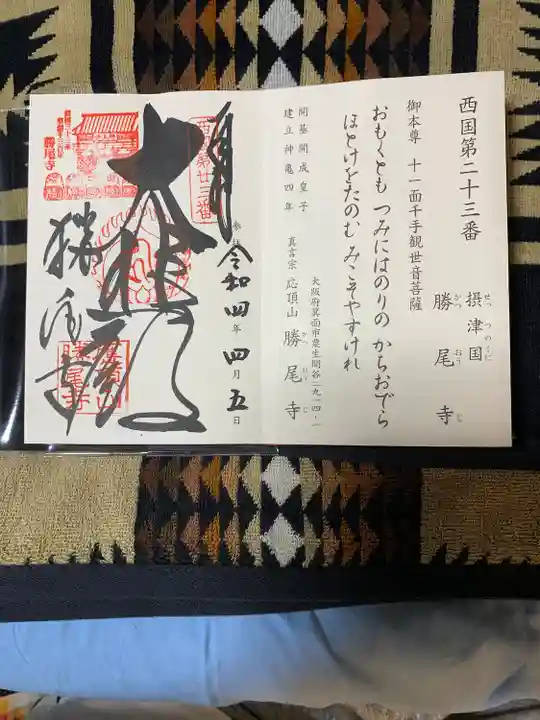 西国第二十三番
摂津国
せつ つのくに
勝尾寺
かつ おう じ
御本尊 十一面千手観世音菩薩
おもくとも つみにはのりの かちおでら
ほとけをたのむ みこそやすけれ
開基開成皇子
建立神亀四年
大阪府箕面市粟生間谷二九一四-一
真言宗 応頂山 勝尾寺
かつ お じ
令和四年 四月 五日
西国第廿三番
大悲殿
勝尾寺
勝尾寺
勝尾寺